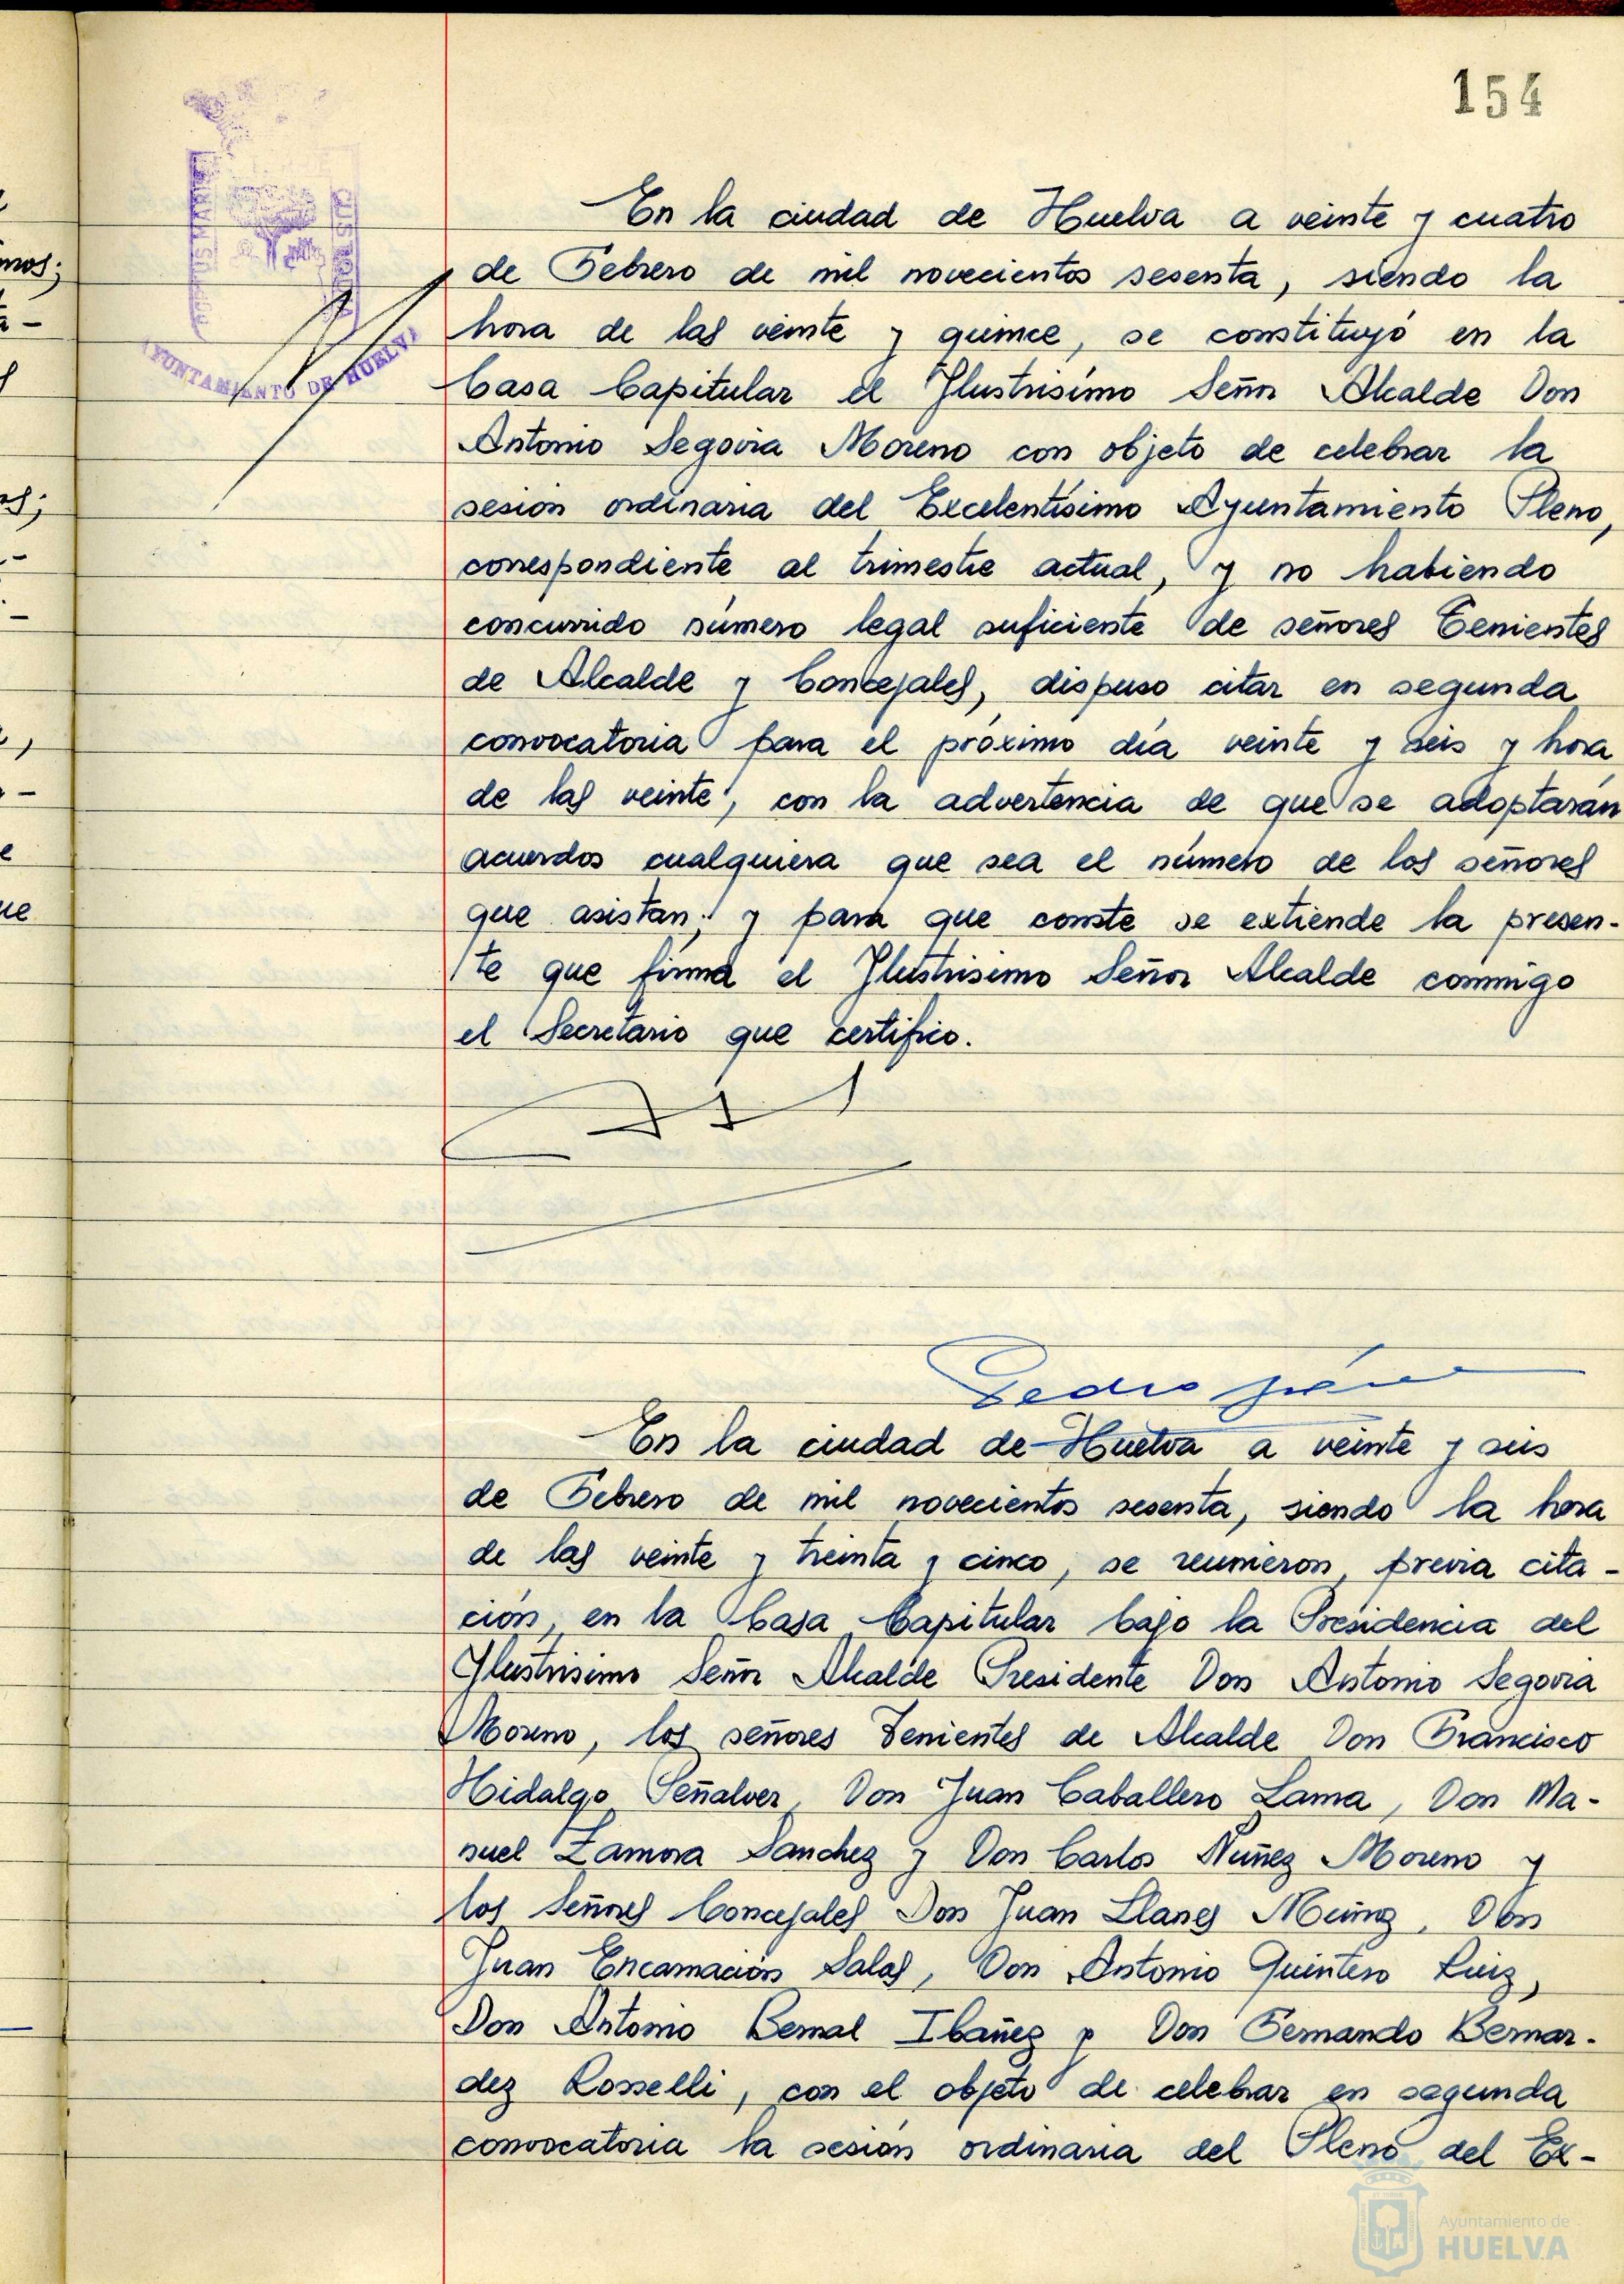 154
PORTUS MARIS
CUSTODIA
AYUNTAMIENTO DE HUELVA
En la ciudad de Huelva a veinte y cuatro
de Febrero de mil novecientos sesenta, siendo la
hora de las veinte y quince, se constituyó en la
Casa Capitular el Ilustrisimo Señor Alcalde Don
Antonio Segovia Moreno con objeto de celebrar la
sesión ordinaria del Excelentísimo Ayuntamiento Pleno,
correspondiente al trimestre actual, y no habiendo
concurrido número legal suficiente de señores Tenientes
de Alcalde y Concejales, dispuso citar en segunda
convocatoria para el próximo día veinte y seis y hora
de las veinte, con la advertencia de que se adoptarán
acuerdos cualquiera que sea el número de los señores
que asistan; y para que conste se extiende la presen-
te que firma el Ilustrisimo Señor Alcalde conmigo
el Secretario que certifico.
Pedro
En la ciudad de Huelva a veinte y seis
de Febrero de mil novecientos sesenta, siendo la hora
de las veinte y treinta y cinco, se reunieron, previa cita-
ción, en la Casa Capitular bajo la Presidencia del
Ilustrisimo Señor Alcalde Presidente Don Antonio Segovia
Moreno, los señores Tenientes de Alcalde Don Francisco
Hidalgo Peñalver, Don Juan Caballero Lama, Don Ma-
nuel Zamora Sanchez y Don Carlos Nuñez Moreno y
los Señores Concejales Don Juan Llanes Muñoz, Don
Juan Encarnación Salas, Don Antonio Quintero Ruiz,
Don Antonio Bernal Ibañez y Don Fernando Bernar-
dez Rosselli, con el objeto de celebrar en segunda
convocatoria la sesión ordinaria del Pleno del Ex-
Ayuntamiento de
HUELVA